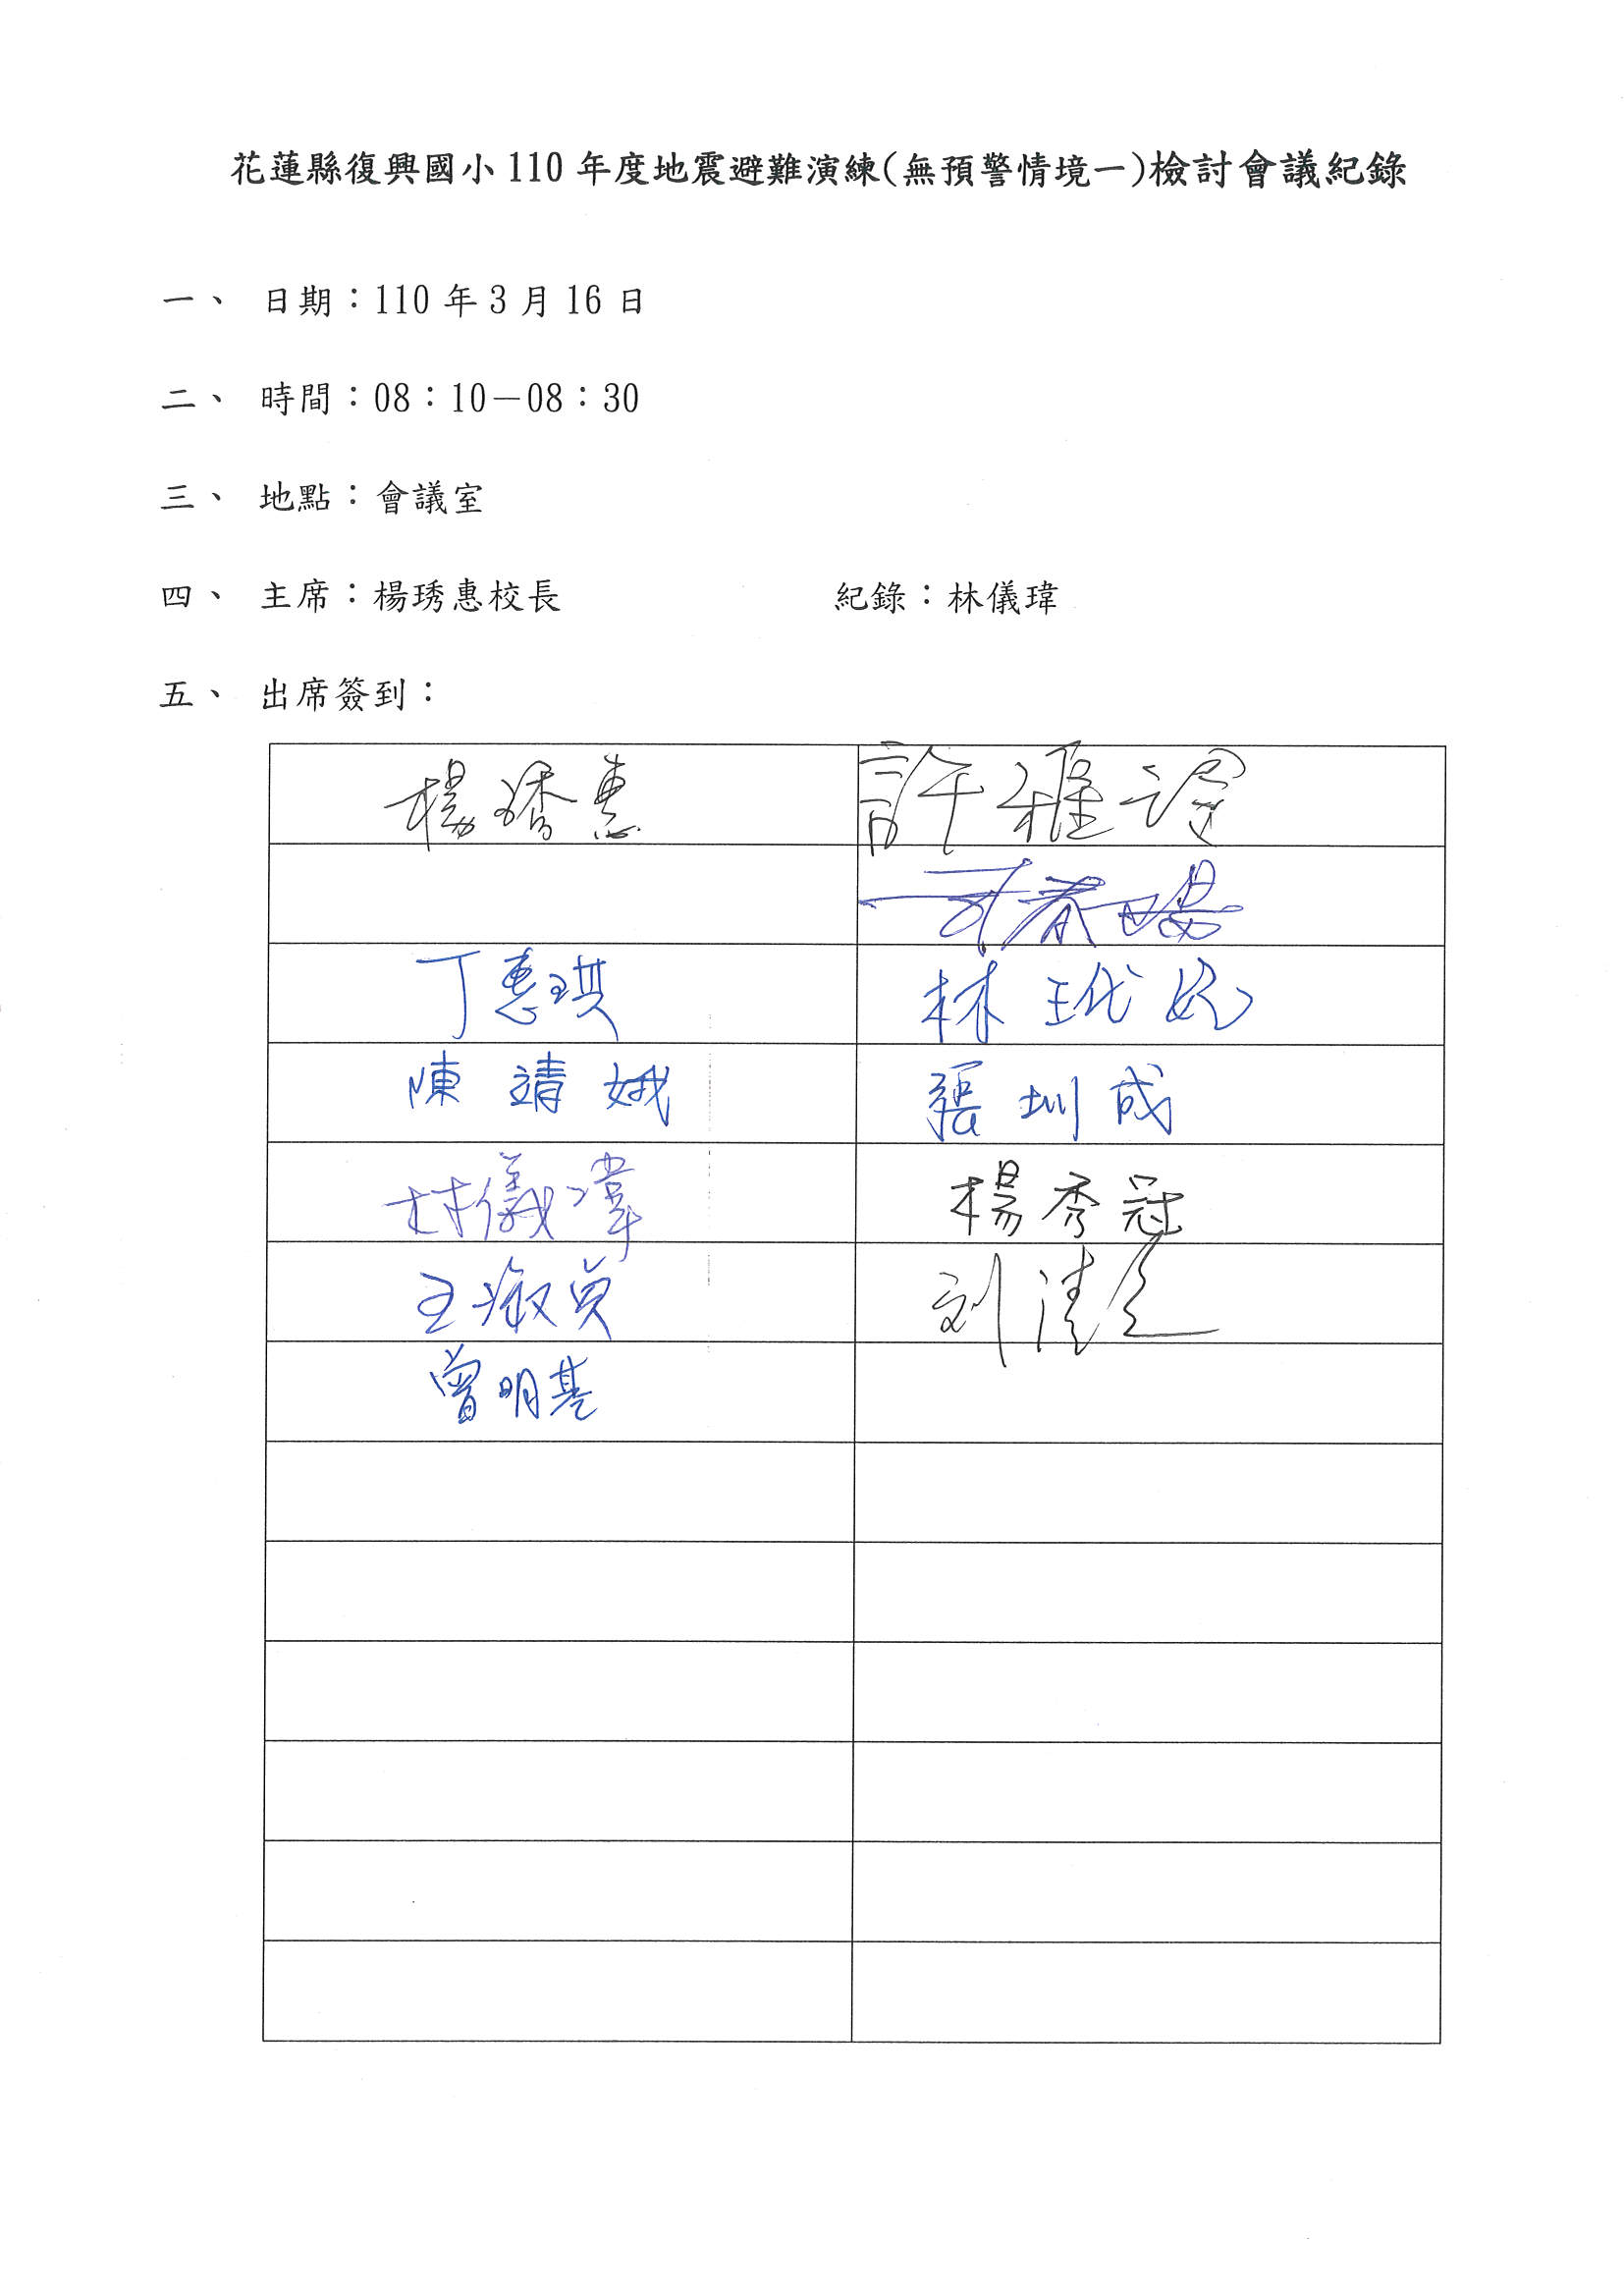 花蓮縣復興國小110年度地震避難演練(無預警情境一)檢討會議紀錄
一、 日期：110年3月16日
二、 時間：08：10－08：30
三、 地點：會議室
四、 主席：楊琇惠校長 紀錄：林儀瑋
五、 出席簽到：
楊琇惠 許雅
丁惠琪 林玳妃
陳靖娥 張圳成
林儀瑋 楊秀冠
王淑貞 刘清
曾明基